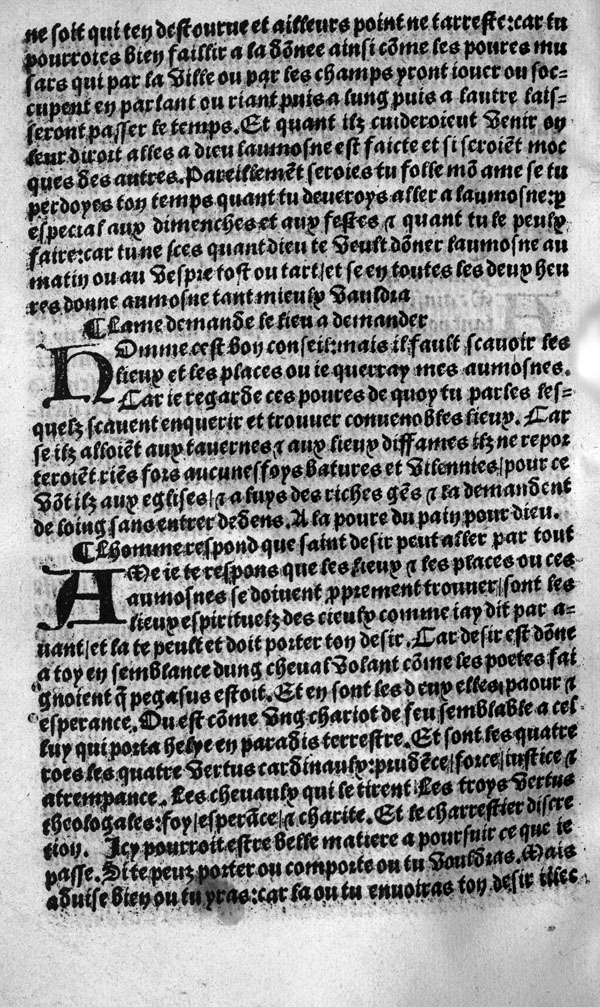 ne soit qui ten destourne et ailleurs point ne tarreste:car tu
pourroies bien faillir a la dõnee ainsi cõme les poures mu
sars qui par la ville ou par les champs yront iouer ou soc-
cupent en parlant ou riant puis a lung puis a lautre lais-
seront passer le temps. Et quant ilz cuideroient venir on
leur diroit alles a dieu laumosne est faicte et si seroiẽt moc
ques des autres. Pareillemẽt seroies tu folle mõ ame se tu
perdoyes ton temps quant tu deueroys aller a laumosne:ꝑ
especial aux dimenches et aux festes ⁊ quant tu le peulx
faire:car tu ne sces quant dieu te veult dõner laumosne au
matin ou au vespre tost ou tart/et se en toutes les deux heu
res donne aumosne tant mieulx vauldra
¶Lame demande le lieu a demander
HOmme cest bon conseil:mais il fault scauoir les
lieux et les places ou ie querray mes aumosnes.
Car ie regarde ces poures de quoy tu parles les-
quelz scauent enquerir et trouuer conuenobles lieux. Car
se ilz alloiẽt aux tauernes ⁊ aux lieux diffames ilz ne repor
teroiẽt riẽs fors aucunesfoys batures et vilennies/pour ce
võt ilz aux eglises/⁊ a luys des riches gẽs ⁊ la demandent
de loing sans entrer dedens. A la poure du pain pour dieu.
¶Lhomme respond que saint desir peut aller par tout
AMe ie te respons que les lieux ⁊ les places ou ces
aumosnes se doiuent ꝓprement trouuer/sont les
lieux espirituelz des cieulx comme iay dit par a-
uant/et la te peult et doit porter ton desir. Car desir est dõne
a toy en semblance dung cheual volant cõme les poetes fai
gnoient q̃ pegasus estoit. Et en sont les deux elles/paour ⁊
esperance. Ou est cõme vng chariot de feu semblable a cel-
luy qui porta helye en paradis terrestre. Et sont les quatre
roes les quatre vertus cardinaulx:prudẽce/force/iustice ⁊
atrempance. Les cheuaulx qui le tirent Les troys vertus
theologales:foy/esperãce/⁊ charite. Et le charrestier discre
tion. Icy pourroit estre belle matiere a poursuir ce que ie
passe. Si te peuz porter ou comporte ou tu vouldras. Mais
aduise bien ou tu yras:car la ou tu enuoiras ton desir illec